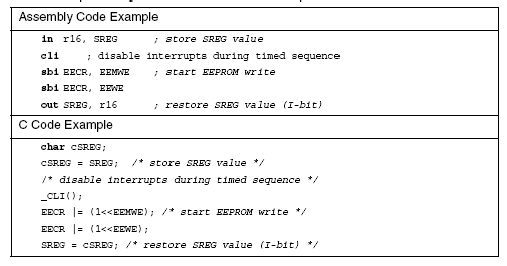 Assembly Code Example
in r16, SREG ; store SREG value
cli ; disable interrupts during timed sequence
sbi EECR, EEMWE ; start EEPROM write
sbi EECR, EEWE
out SREG, r16 ; restore SREG value (I-bit)
C Code Example
char cSREG;
cSREG = SREG; /* store SREG value */
/* disable interrupts during timed sequence */
_CLI();
EECR |= (1<<EEMWE); /* start EEPROM write */
EECR |= (1<<EEWE);
SREG = cSREG; /* restore SREG value (I-bit) */